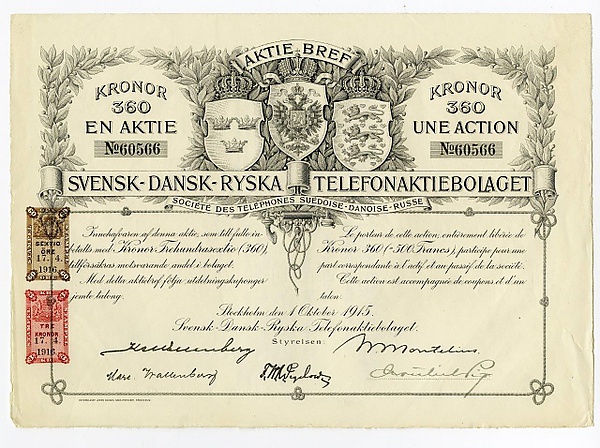 AKTIE BREF
KRONOR
360
EN AKTIE
No60566
KRONOR
360
UNE ACTION
No60566
SVENSK-DANSK-RYSKA TELEFONAKTIEBOLAGET
SOCIÉTÉ DES TÉLÉPHONES SUÉDOISE-DANOISE-RUSSE
Innehafvaren af denna aktie, som till fullo in-
betalts med Kronor Trehundrasextio (360),
tillförsäkras motsvarande andel i bolaget.
Med detta aktiebref följa utdelningskuponger
jemte talong.
Le porteur de cette action, entièrement libérée de
Kronor 360 (=500 Francs), participe pour une
part correspondante à l'actif et au passif de la société.
Cette action est accompagnée de coupons et d'un
talon.
Stockholm den 1 Oktober 1915.
Svensk-Dansk-Ryska Telefonaktiebolaget.
Styrelsen:
Marc Wallenberg
SEXTIO
ÖRE
17. 4.
1916
TRE
KRONOR
17. 4.
1916